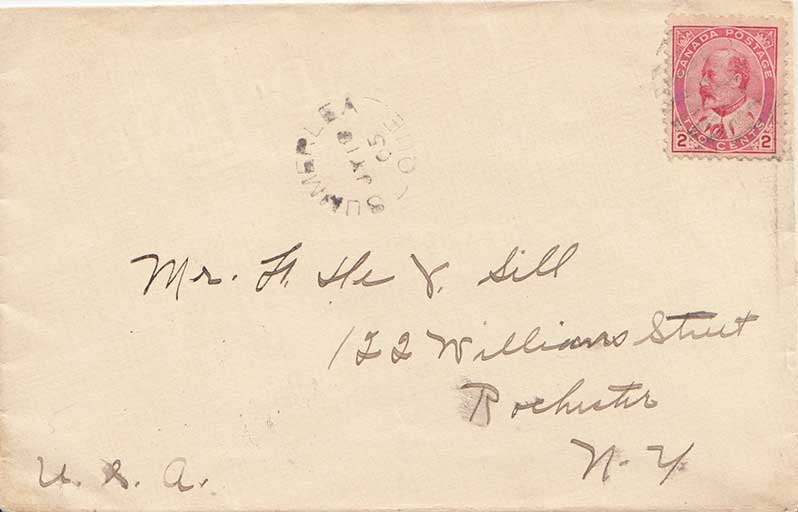 CANADA POSTAGE
2 TWO CENTS 2
SUMMERLEA QUE
JY 18
05
Mr. H. De V. Sill
122 Williams Street
Rochester
N.Y.
U.S.A.